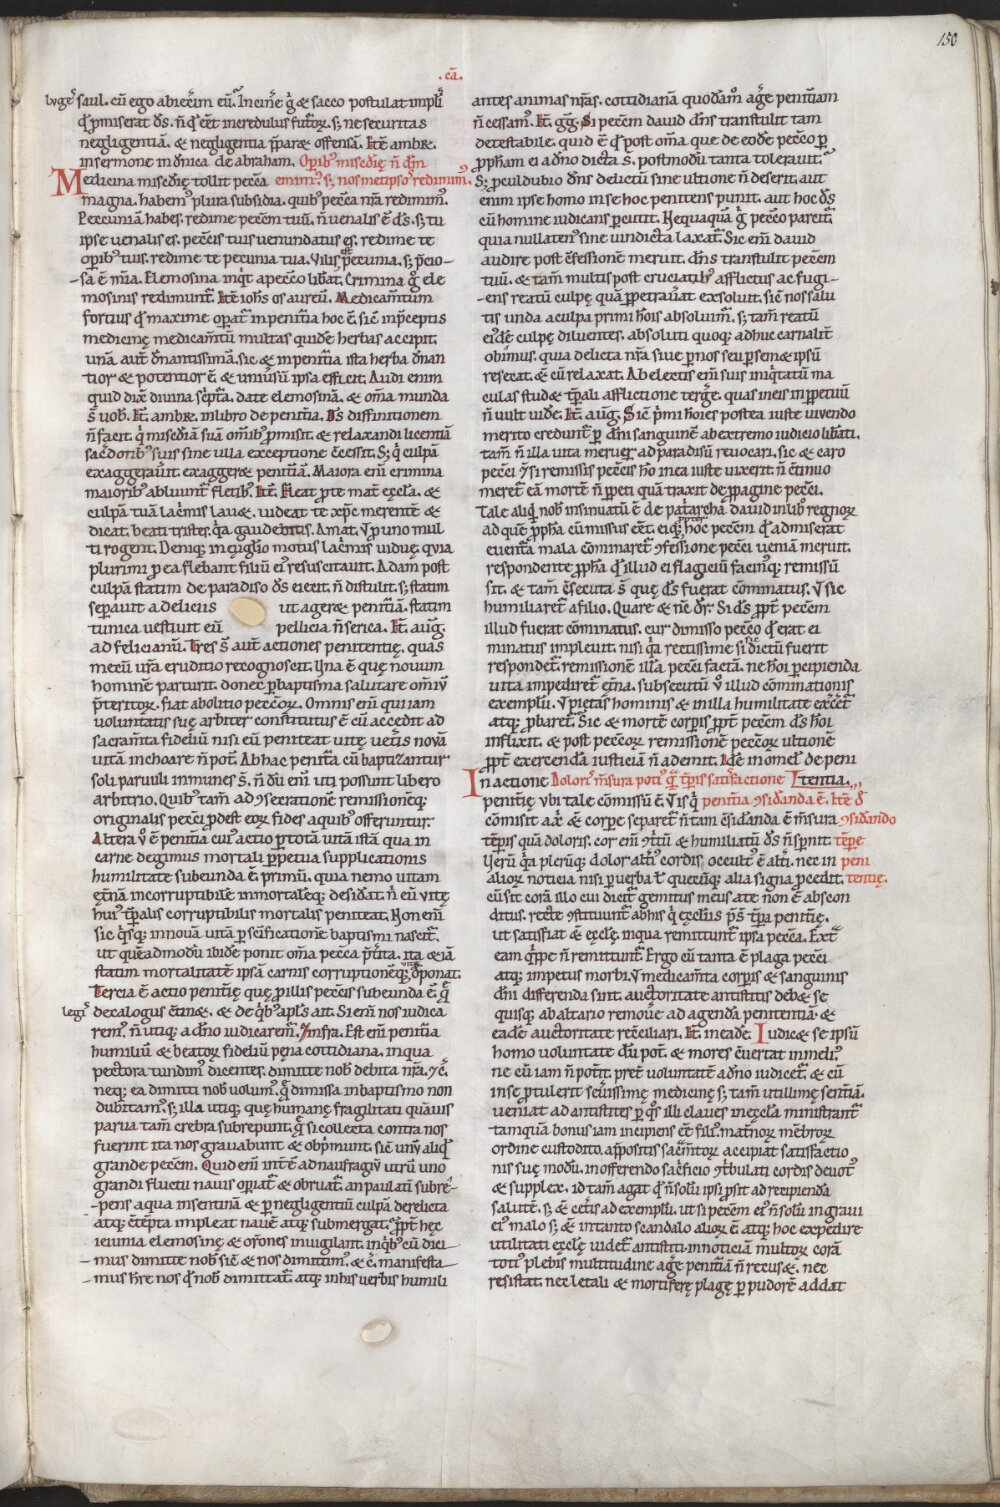 150
.cā.
lvgeˀ saul. cū ego abiecerim eū. In cinere gͥ & sacco postulat impleri
qđ p̄miserat ds̄. n̄ qđ eēt incredulus futorꝝ. sꝫ ne securitas
negligentiā. & negligentia p̄pararet offensā. Itē ambr̄.
in sermone in dn̄ica de abraham. Operibꝰ misc̄dię n̄ dn̄m
Medicina misc̄dię tollit peccā emimꝰ. sꝫ nosmetipsos redimimꝰ.
magna. habemꝰ plura subsidia. quibꝰ peccā nr̄a redimimꝰ.
Peccuniā habes. redime peccm̄ tuū. n̄ uenalis ē ds̄. sꝫ tu
ipse uenalis es. peccīs tuis uenundatus es. redime te
oꝑibꝰ tuis. redime te pecunia tua. Vilis ē peccunia. sꝫ p̄cio-
sa ē mīa. Elemosina inqͥt a peccō libat̄. Crimina gͦ ele
mosinis redimunt̄. Itē iohs̄ os aureū. Medicamtum
fortius qđ maxime opat̄ in penitīa hoc ē. sic̄ in p̄ceptis
medicinę medicamtū multas quidē herbas accipit.
unā aut̄ dn̄antissimā. sic & in penitīa ista herba dn̄an
tior & potentior ē. & uniuersū ipsa efficit. Audi enim
quid dicat diuina scͥpta. date elemosinā. & omīa munda
s̄ uob̄. It̄ ambr̄. in libro de penitīa. Ds̄ diffinitionem
n̄ facit. qͥ misc̄diā suā omībꝰ p̄misit. & relaxandi licentiā
sacerdotibꝰ suis sine ulla exceptione c̄cessit. Sꝫ qͥ culpā
exaggerauit. exaggeret penitīā. Maiora enī crimina
maioribꝰ abluunt̄ fletibꝰ. It̄. Fleat p te mat̄ eccla. &
culpā tuā lacͥmis lauet. uideat te xp̄c merentē &
dicat. beati tristes. qͥa gaudebitis. Amat. ut p uno mul
ti rogent. Deniqꝫ in euglio motus lacͥmis uiduę. quia
plurimi p ea flebant filiū eiꝰ resuscitauit. Adam post
culpā statim de paradiso ds̄ eiecit. n̄ distulit. sꝫ statim
separauit a deliciis ut ageret penitīā. statim
tunica uestiuit eū pellicia n̄ serica. It̄. auḡ.
ad felicianū. Tres s̄ aut̄ actiones penitentię. quas
mecū ur̄a eruditio recognoscit. Una ē quę nouum
hominē parturit. donec ꝑ baptisma salutare omīū
p̄teritorꝝ. fiat abolitio peccōꝝ. Omnis enī qui iam
voluntatis suę arbiter constitutus ē cū accedit ad
sacramta fideliū nisi eū peniteat uitę ueteris nouā
uitā inchoare n̄ pot̄. Ab hac penitīa cū baptizantur
soli paruuli immunes s̄. n̄ dū enī uti possunt libero
arbitrio. Quibꝰ tam̄ ad ꝯsecrationē remissionēqꝫ
originalis peccī pdest eoꝝ fides a quibꝰ offeruntur.
Altera ū ē penitīa cuiꝰ actio ꝑ totā uitā istā qua in
carne degimus mortali ꝑpetua supplicationis
humilitate subeunda ē. primū. quia nemo uitam
et̄nā incorruptibilē inmortalēqꝫ desidat̄. n̄ eū uitę
huiꝰ tp̄alis corruptibilis mortalis peniteat. Non enī
sic qͥsqꝫ in nouā uitā ꝑ sc̄ificationē baptismi nascit̄.
ut quēadmodū ibidē ponit omīa peccā p̄t̄ita. ita & iā
statim mortalitatē ipsā carnis corruptionēqꝫ dep̄onat.
Tercia ē actio penitīę quę p illis peccīs subeunda ē. qͣ
legiˀ decalogus c̄tinet. & de qͥbꝰ apl̄s ait. Si enī nos iudica
remꝰ. n̄ utiqꝫ a dn̄o iudicaremꝰ. & infra. Est enī penitīa
humiliū & beatoꝝ fideliū pena cottidiana. in qua
pectora tundimꝰ dicentes. dimitte nob̄ debita nr̄a. &c̄.
neqꝫ ea dimitti nob̄ uolumꝰ. qͣ dimissa in baptismo non
dubitamꝰ. sꝫ illa utiqꝫ quę humanę fragilitati quāuis
parua tam̄ crebra subrepunt. qͣ si collecta contra nos
fuerint ita nos grauabunt & obp̄munt. sic̄ unū aliqđ
grande peccm̄. Quid enī int̄ē ad naufragiū utrū uno
grandi fluctu nauis opiat̄ & obruat̄. an paulatī subre-
pens aqua in sentinā & ꝑ negligentiū culpā derelicta
atqꝫ c̄tēpta impleat nauē atqꝫ submergat. ꝓpt̄ hęc
ieiunia elemosinę & or̄ones inuigilant. in qͥbꝰ cū dici-
mus dimitte nob̄ sic̄ & nos dimittimꝰ. & c̄. manifesta-
mus hr̄e nos qđ nob̄ dimittat̄. atqꝫ in his uerbis humili
antes animas nr̄as. cottidianā quodāmͦ agere penitīam
n̄ cessamꝰ. It̄. gḡ. Si peccm̄ dauid dn̄s transtulit tam
detestabile. quid ē qđ post omīa que de eodē peccō ꝑ
ꝓpham ei a dn̄o dicta s̄. postmodū tanta tolerauit.
Sꝫ pcul dubio dn̄s delictū sine ultione n̄ deserit. aut
enim ipse homo in se hoc penitens punit. aut hoc ds̄
cū homine iudicans ꝑcutit. Nequaquā gͥ peccō parcit̄.
quia nullatenꝰ sine uindicta laxat̄. Sic enī dauid
audire post c̄fessionē meruit. dn̄s transtulit peccm̄
tuū. & tam̄ multis post cruciatibꝰ afflictus ac fugi-
ens reatū culpę quā ꝑpetrauat exsoluit. sic̄ nos salu
tis unda a culpa primi hoīs absoluimꝰ. sꝫ tam̄ reatū
eiꝰdē culpę diluentes. absoluti quoqꝫ adhuc carnalit̄
obimus. quia delicta nr̄a siue ꝑ nos seu ꝑ semetipsū
resecat. et̄ cū relaxat. Ab electis enī suis iniqͥtatū ma
culas studet tp̄ali afflictione tergere. quas in eis in ꝑpetuū
n̄ uult uidere. It̄. auḡ. Sic̄ p̄mi hoīes postea iuste uiuendo
merito creduntˀ ꝑ dn̄i sanguinē ab extremo iudicio libati.
tam̄ n̄ illa uita meruer̄ ad paradisū reuocari. sic & caro
peccī & si remissis peccīs hō in ea iuste uixerit. n̄ c̄tinuo
meret̄ eā mortē n̄ ꝑpeti quā traxit de ꝓpagine peccī.
Tale aliqͥd nob̄ insinuatū ē de patriarcha dauid in libꝰ regnoꝝ
ad quē ꝓpha cū missus eēt. eiqꝫ ꝓpt̄ hoc peccm̄ qđ admiserat
euentͣ mala cōminaret̄. ꝯfessione peccī ueniā meruit.
respondente ꝓpha qđ illud ei flagiciū facinusqꝫ remissū
sit. & tam̄ c̄secuta s̄ quę ds̄ fuerat cōminatus. Vt sic
humiliaret̄ a filio. Quare & nc̄ dr̄. Si ds̄ ꝓpt̄ peccm̄
illud fuerat cōminatus. cur dimisso peccō qđ erat ei
minatus impleuit. nisi qͥa rectissime si dictū fuerit
respondet̄. remissionē illā peccī factā. ne hō ꝑcipienda
uita impediret̄ et̄na. subsecutū ū illud cōminationis
exemplū. Vt pietas hominis & in illa humilitate exerceret̄
atqꝫ ꝓbaret̄. Sic & mortē corpis ꝓpt̄ peccm̄ ds̄ hoī
inflixit. & post peccōꝝ remissionē peccōꝝ ultionē
ꝓpt̄ exercendā iusticiā n̄ ademit. Idē in omel̄ de peni
In actione Doloris m̄sura potiꝰ qͣ tp̄is satisfactione tentia.
penitīę ubi tale commissū ē. Vt is qͥ penitīa ꝯsidanda ē. Itē đ
cōmisit a xp̄i & corpe separet̄ n̄ tam c̄sidanda ē m̄sura ꝯsidando
tp̄is quā doloris. cor enī ꝯtͥtū & humiliatū ds̄ n̄ sp̄nit. tp̄pe
Uerū qͥa plerūqꝫ dolor alt̄iꝰ cordis. occultꝰ ē alt̄i. nec in peni
alioꝝ noticiā nisi ꝑ uerba ul̄ quecūqꝫ alia signa ꝓcedit. tentię.
cū sit corā illo cui dicit̄ gemitus meus a te non ē abscon
ditus. recte ꝯstituunt̄ ab his qͥ eccliis p̄s̄ tp̄ra penitīę.
ut satisfiat & ęcclę. in qua remittunt̄ ipsa peccā. Extͣ
eam qͥppe n̄ remittunt̄. Ergo cū tanta ē plaga peccī
atqꝫ impetus morbi. ut medicamta corpis & sanguinis
dn̄i differenda sint. auctoritate antistitis debet se
quisqꝫ ab altario remouere ad agendā penitentiā. &
eadē auctoritate recc̄iliari. It̄. in eadē. Iudicet se ipsū
homo uoluntate dū pot̄. & mores c̄uertat in meliꝰ.
ne cū iam n̄ potit. pret̄ voluntatē a dn̄o iudicet̄. & cū
in se ꝓtulerit seuerissimę medicinę sꝫ tam̄ utillimę sentīā.
ueniat ad antistites ꝑ qͦs illi claues in eccla ministrant̄
tamquā bonus iam incipiens ēē filiꝰ. mat̄noꝝ mēbroꝝ
ordine custodito. a p̄positis sacm̄toꝝ accipiat satisfactio
nis suę modū. in offerendo sacͥficio ꝯtͥbulati cordis deuotꝰ
& supplex. id tam̄ agat qđ n̄ solū ipsi ꝓsit ad recipiendā
salutē. sꝫ & cet̄is ad exemplū. ut si peccm̄ eiꝰ n̄ solū in graui
eiꝰ malo sꝫ & in tanto scandalo alioꝝ ē. atqꝫ hoc expedire
utilitati ecclę uidet̄ antistiti. in noticiā multoꝝ corā
totiꝰ plebis multitudine agere penitīā n̄ recuset. nec
resistat. nec letali & mortiferę plagę ꝑ pudorē addat